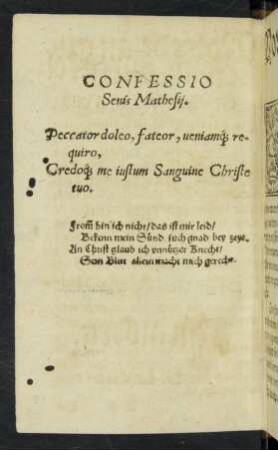 CONFESSIO
Senis Mathesij.
Peccator doleo, fateor, ueniamq́; re-
quiro,
Credoq́; me iustum Sanguine Christe
tuo.
From̃ bin ich nicht/ das ist mir leid/
Bekenn mein Sünd such gnad bey zeyt.
An Christ glaub ich vnnützer Knecht/
Sein Blut allein macht mich gerecht.